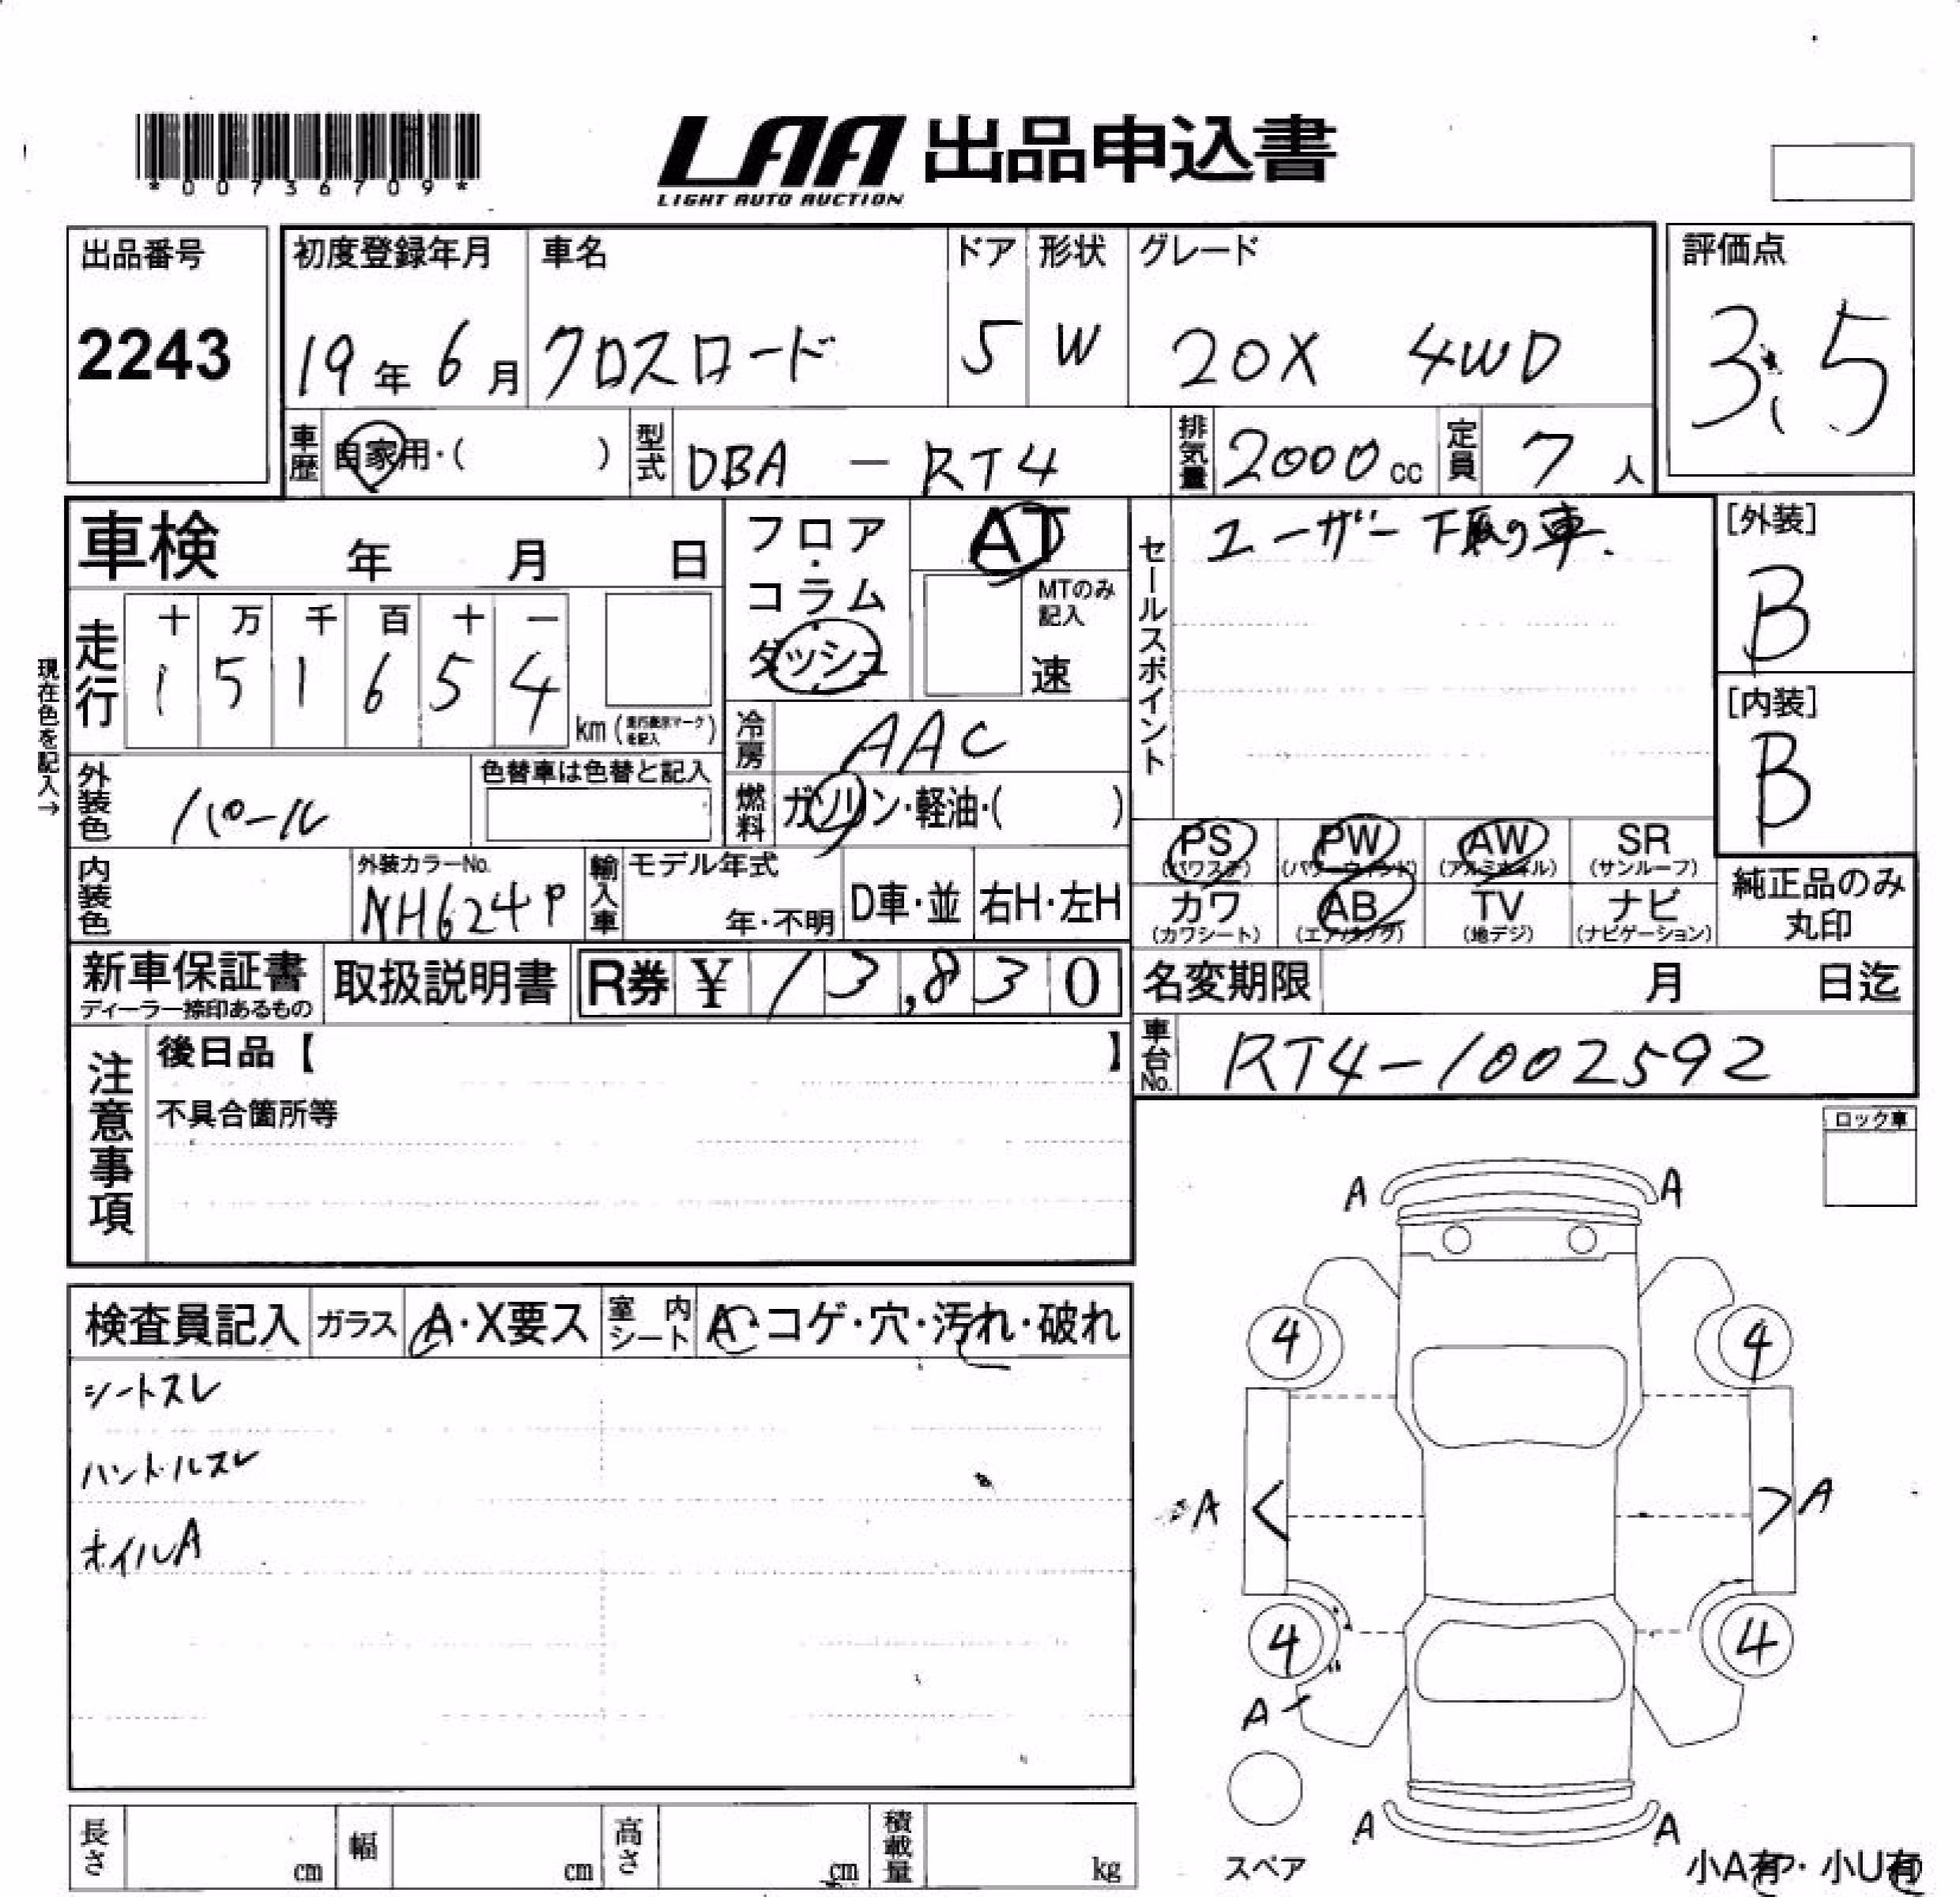 *00736709*
LAA 出品申込書
LIGHT AUTO AUCTION
出品番号
2243
初度登録年月
19年 6月
車名
クロスロード
ドア
5
形状
W
グレード
20X 4WD
評価点
3.5
車歴
自家用・( )
型式
DBA - RT4
排気量
2000 cc
定員
7 人
車検 年 月 日
フロア・コラム・ダッシュ
AT
MTのみ記入
速
セールスポイント
ユーザー下取り車.
[外装]
B
[内装]
B
現在色を記入→
走行
十 万 千 百 十 一
1 5 1 6 5 4
km (走行表示マークを記入)
冷房
AAC
外装色
パール
色替車は色替と記入
燃料
ガソリン・軽油・( )
PS (パワステ)
PW (パワーウィンド)
AW (アルミホイル)
SR (サンルーフ)
カワ (カワシート)
AB (エアバッグ)
TV (地デジ)
ナビ (ナビゲーション)
純正品のみ丸印
内装色
外装カラーNo.
NH624P
輸入車
モデル年式
年・不明
D車・並
右H・左H
新車保証書
ディーラー捺印あるもの
取扱説明書
R券 ¥ 13,830
名変期限 月 日迄
車台No.
RT4-1002592
注意事項
後日品【 】
不具合箇所等
ロック車
検査員記入
ガラス
A・X要ス
室内シート
A・コゲ・穴・汚れ・破れ
シートスレ
ハンドルスレ
ホイルA
A A
4 4
A A
4 4
A
A A
スペア
小A有・小U有
長さ cm
幅 cm
高さ cm
積載量 kg